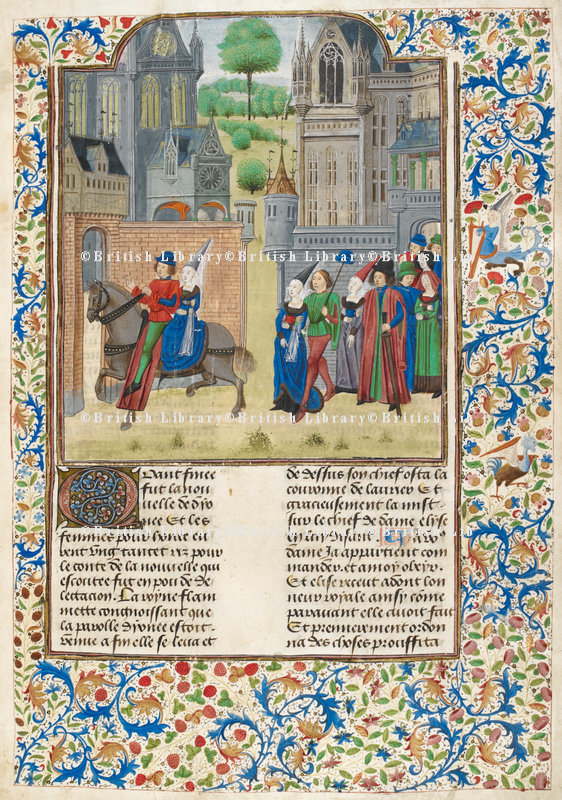 ©British Library©British Library©British Li
©British Library©British Library©British Li
Quant finee
fut la nou
uelle de dyo
nee Et les
femmes pour
bent ung tantet ris pour
le conte de la nouuelle qui
escoutee fut en pou de de
lectacion. La royne flam
mette congnoissant que
la parolle dyonee estoit
venue a fin elle se leua et
de dessus son chief osta la
couronne de laurier Et
gracieusement la mist
sur le chief de dame elise
en luy disant A vous
dame Ja appartient com
mander et a moy obeyr.
Et elise receut adont lon
neur royale ainsy comme
parauant elle auoit fait
Et premierement ordon
na des choses prouffita